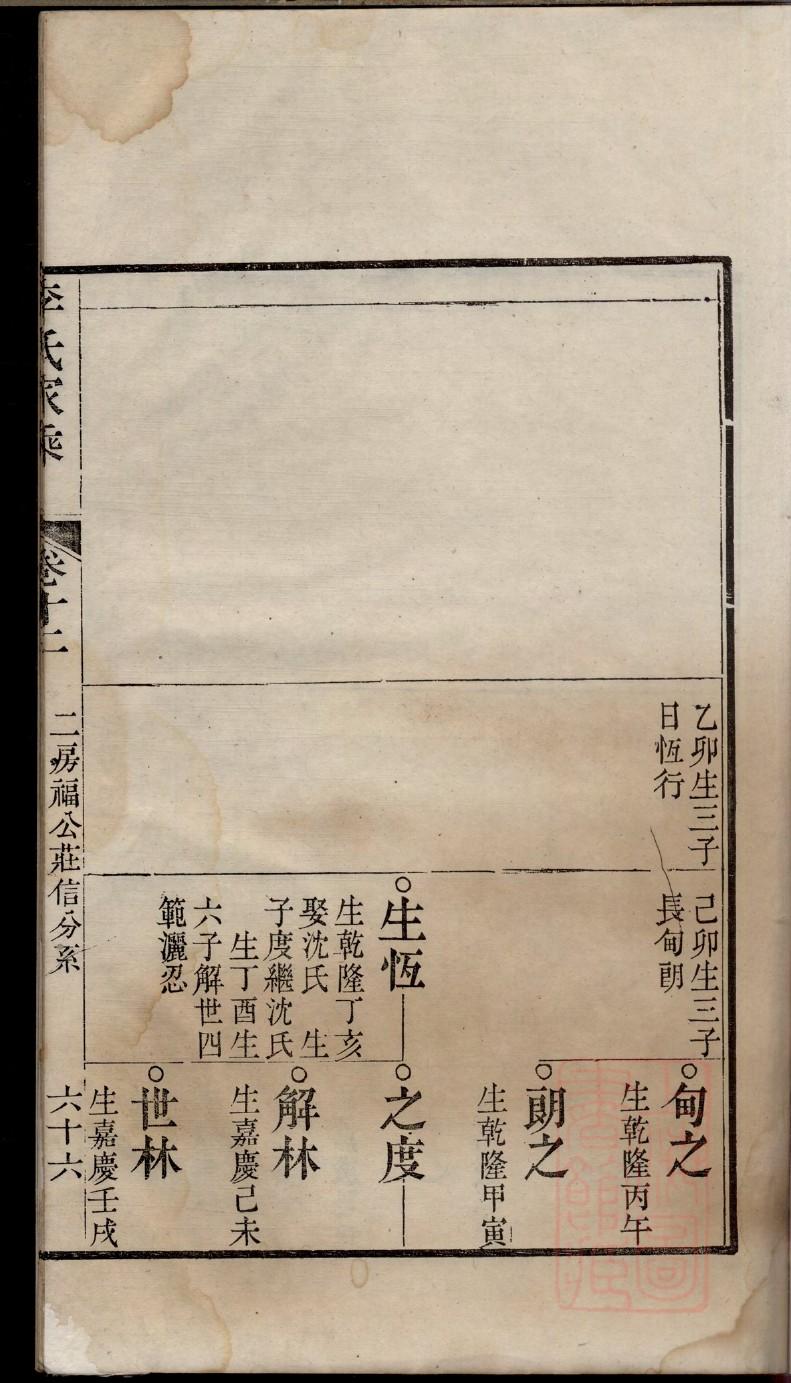 乙卯生三子
日恆行
己卯生三子
長甸朗
生恆
生乾隆丁亥
娶沈氏　生
子度繼沈氏
生丁酉生
六子解世四
範灑忍
甸之
生乾隆丙午
朗之
生乾隆甲寅
之度
解林
生嘉慶己未
世林
生嘉慶壬戌
李氏家乘
卷十二
二房福公莊信分系
六十六